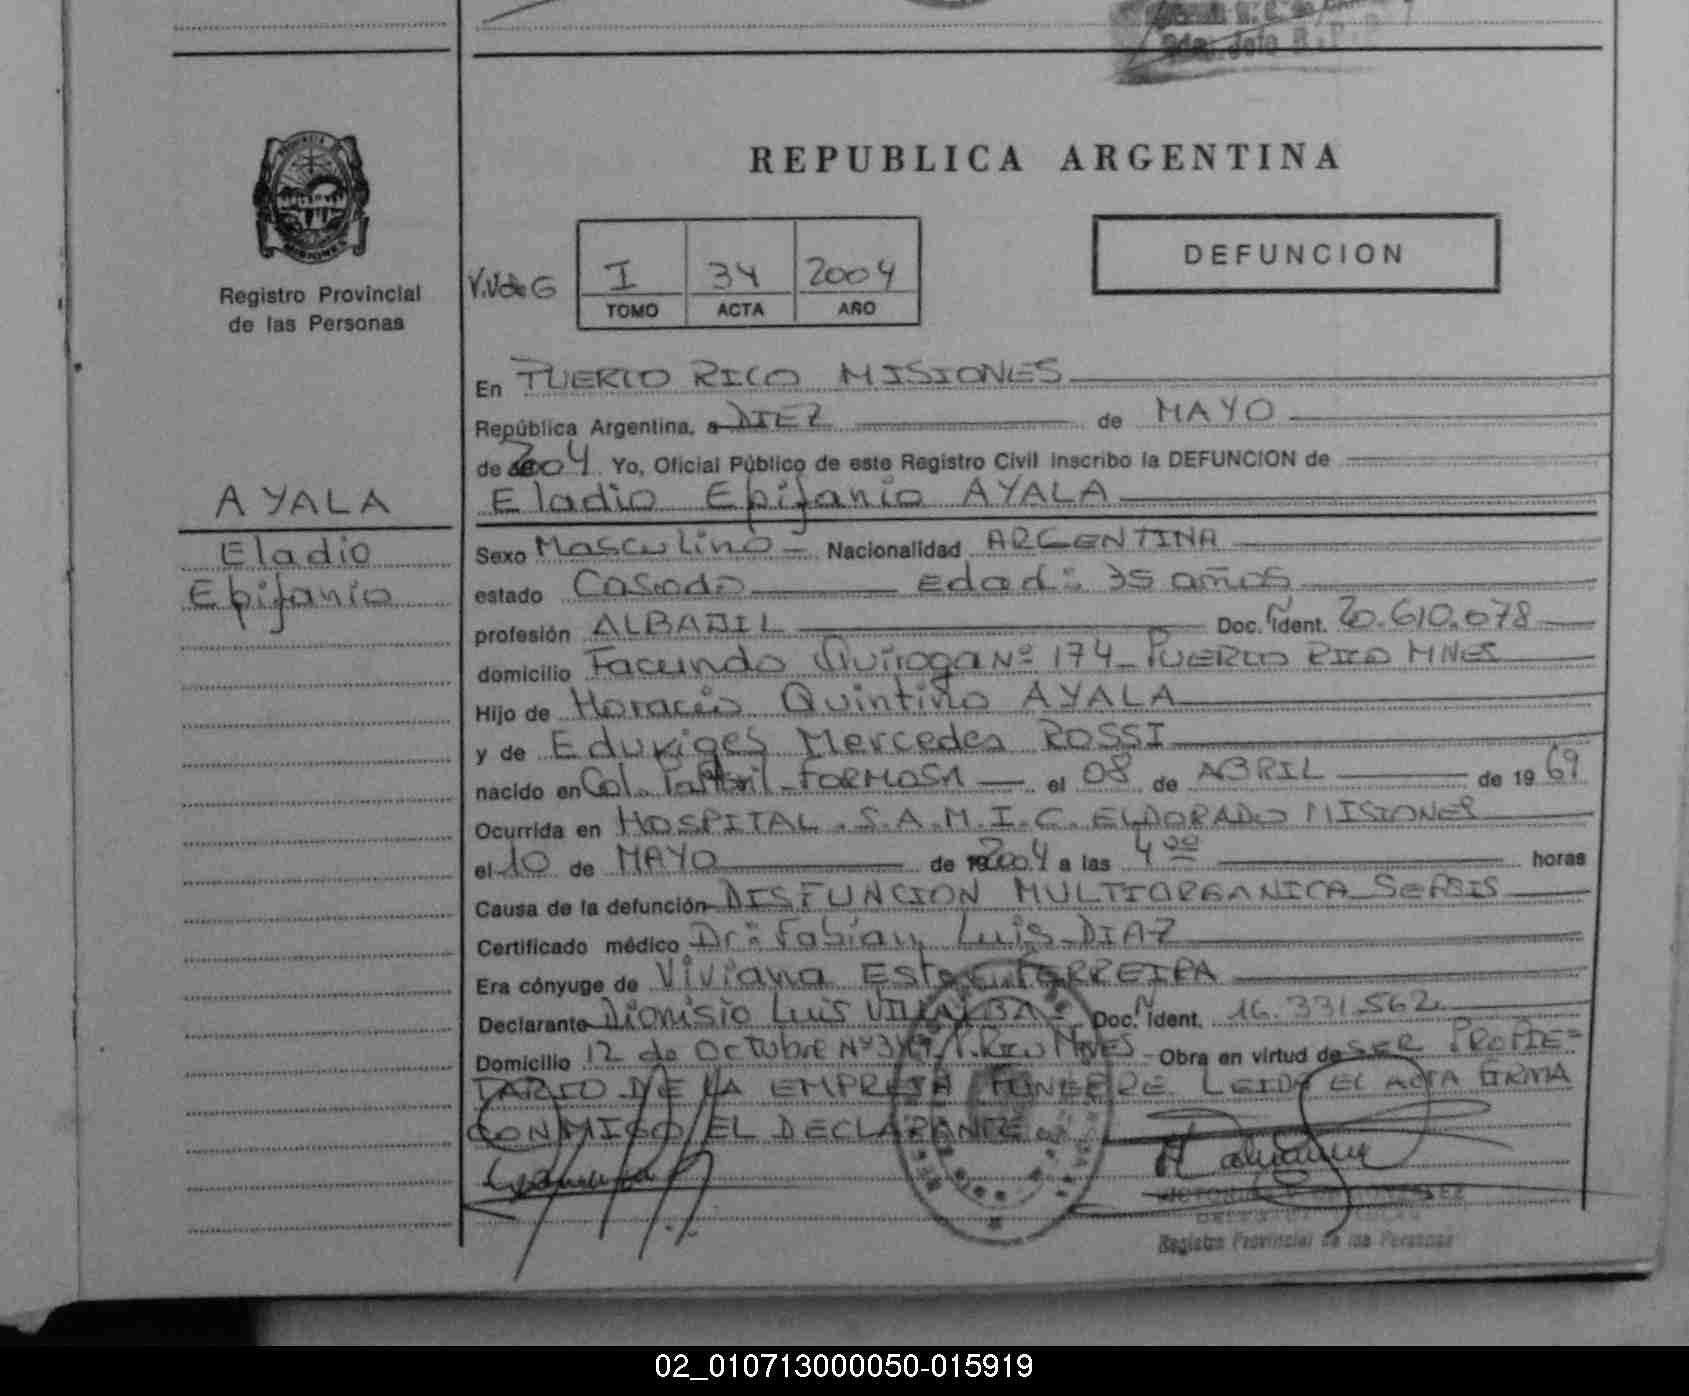 REPUBLICA ARGENTINA
DEFUNCION
Registro Provincial
de las Personas
V.V de G
I 34 2004
TOMO ACTA AÑO
En PUERTO RICO MISIONES
República Argentina, a DIEZ de MAYO
de 2004 Yo, Oficial Público de este Registro Civil inscribo la DEFUNCION de
Eladio Epifanio AYALA
AYALA
Eladio
Epifanio
Sexo Masculino - Nacionalidad ARGENTINA
estado Casado Edad: 35 años
profesión ALBAÑIL Doc. Ñ Ident. 20.610.078
domicilio Facundo Quiroga Nº 174 - PUERTO RICO MNES
Hijo de Horacio Quintino AYALA
y de Eduviges Mercedes ROSSI
nacido en Col. - FORMOSA el 08 de ABRIL de 1969
Ocurrida en HOSPITAL . S.A.M.I.C. ELDORADO MISIONES
el 10 de MAYO de 2004 a las 4 00 horas
Causa de la defunción DISFUNCION MULTIORGANICA SEPSIS
Certificado médico Dr: Fabian Luis DIAZ
Era cónyuge de Viviana Ester FERREIRA
Declarante Dionisio Luis VILLALBA Doc. Ñ Ident. 16.331.562
Domicilio 12 de Octubre Nº P. Rico Mnes - Obra en virtud de SER PROPIE=
TARIO DE LA EMPRESA FUNEBRE LEIDA EL ACTA FIRMA
CONMIGO EL DECLARANTE
Registro Provincial de las Personas
02_010713000050-015919